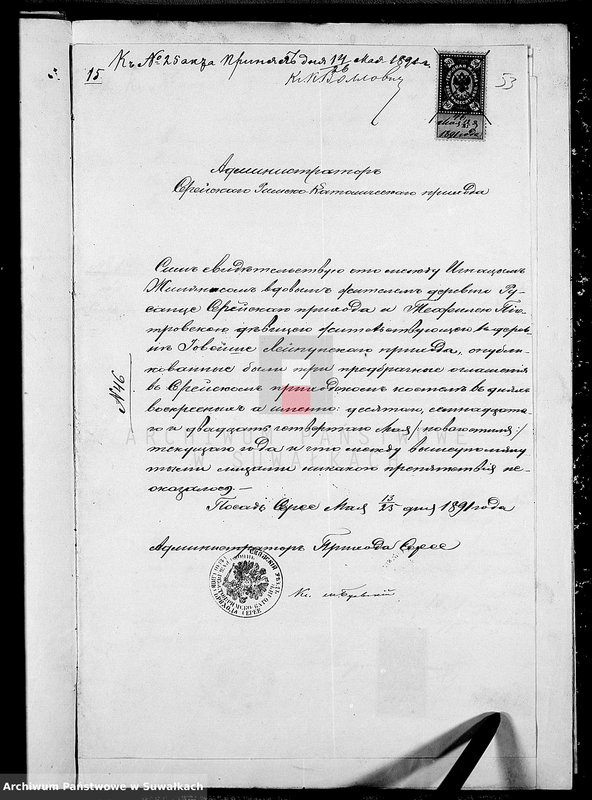 15
Къ № 25 акта Принятъ дня 14/26 Мая 1891 г.
53
Мая
1891 года
Администраторъ
Серейскаго Римско Католическаго прихода
Симъ свидѣтельствую что между Игнацымъ
вдовымъ жителемъ деревни Ру-
санце Серейскаго прихода и Теофилею Піо-
тровскою дѣвицею жительствующею въ дерев-
нѣ Говейше Лейпунскаго прихода, опубли-
кованные были три предбрачные оглашенія
въ Серейскомъ приходскомъ костелѣ въ дняхъ
воскресныхъ а именно: десятаго, семнадцата-
го и двадцать четвертаго Мая /новаго стиля:/
текущаго года и что между вышеупомяну-
тыми лицами никакого препятствія не-
оказалось.—
№ 46
Посадъ Сереѣ Мая 13/25 дня 1891 года
Администраторъ Прихода Сереѣ
Кс.
ARCHIWUM PAŃSTWOWE
W SUWAŁKACH
Archiwum Państwowe w Suwałkach